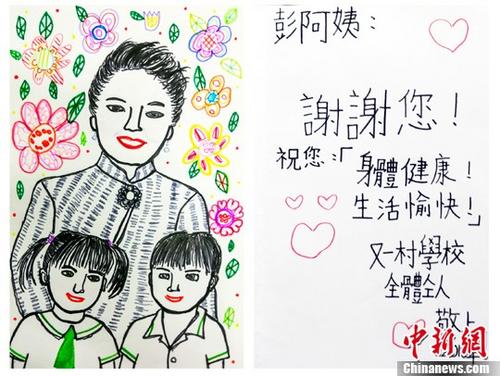 彭阿姨：
謝謝您！
祝您：「身體健康！
生活愉快！」
又一村學校
全體仝人
敬上
中新網
Chinanews.com